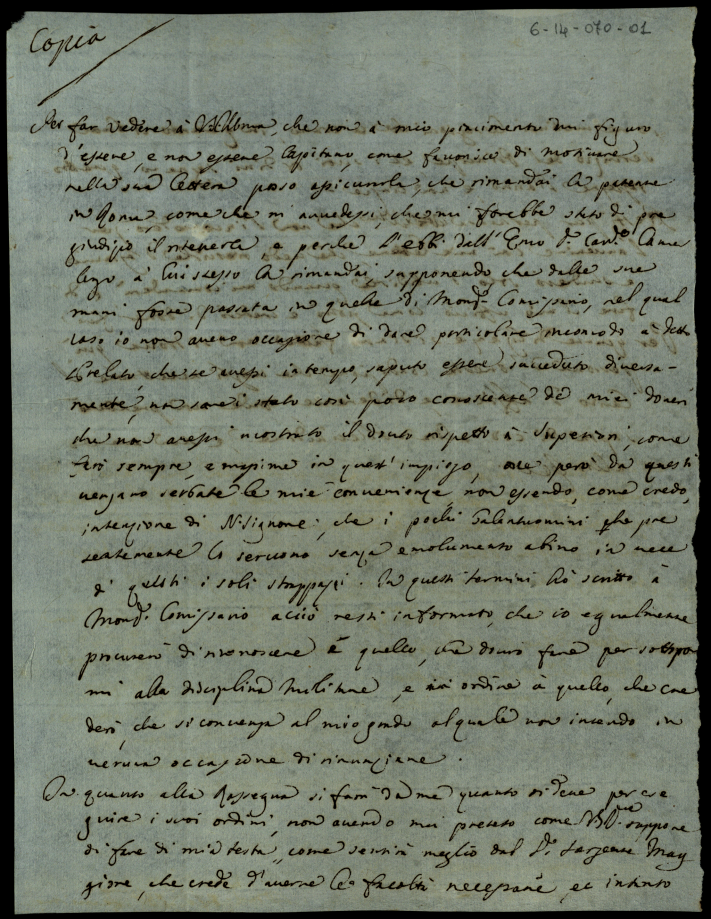 6-14-070-01
Copia
Per far vedere à V.S. Ill.ma, che non à mio piacimento mi figuro
d'essere, e non essere Capitano, come favorisce di motivare
nella sua lettera posso assicurarla, che rimandai la patente
in Roma, come che mi avvedessi, che mi sarebbe stato di pre
giudizio il ritenerla, e perche l'ebbi dall' Emo Sr. Card.le Camer
lengo à lui stesso la rimandai, supponendo che dalle sue
mani fosse passata in quelle di Monsr. Comissario, nel qual
caso io non avevo occasione di dare particolare incomodo à detto
Prelato, che se avessi in tempo, saputo essere succeduto diversa-
mente, non sarei stato così poco conoscente de miei doveri
che non avessi mostrato il dovuto rispetto à Superiori, come
farò sempre, e massime in quest' impiego, ove però da questi
vengano serbate le mie convenienze non essendo, come credo,
intenzione di N. Signore, che i pochi Galantuomini che pre
sentemente lo servono senza emolumento abino in vece
di questi i soli strappazzi. In questi termini hò scritto à
Monsr. Comissario acciò resti informato, che io egualmente
procurerò di riconoscere quello, che dovrò fare per sottopor
mi alla disciplina Militare, e in ordine à quello, che cre
derò, che si convenga al mio grado al quale non intendo in
veruna occasione di rinunziare.
In quanto alla Rassegna si farà da me quanto ordine per ese
guire i suoi ordini, non avendo mai preteso come suppone
di fare di mia testa, come sentirà meglio dal Sr. Sargente Mag
giore, che crede d'averne le facoltà necessarie, et intanto